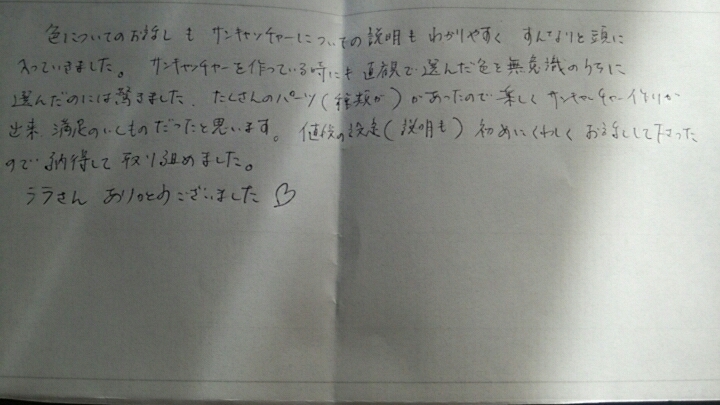 色についてのお話しも サンキャッチャーについての説明もわかりやすく すんなりと頭に
入っていきました。 サンキャッチャーを作っている時にも直観で選んだ色を無意識のうちに
選んだのには驚きました。たくさんのパーツ(種類が)があったので楽しくサンキャッチャー作りが
出来 満足のいくものだったと思います。 値段の設定(説明も)初めにくわしくお話しして下さった
ので納得して取り組めました。
ララさん ありがとうございました♡